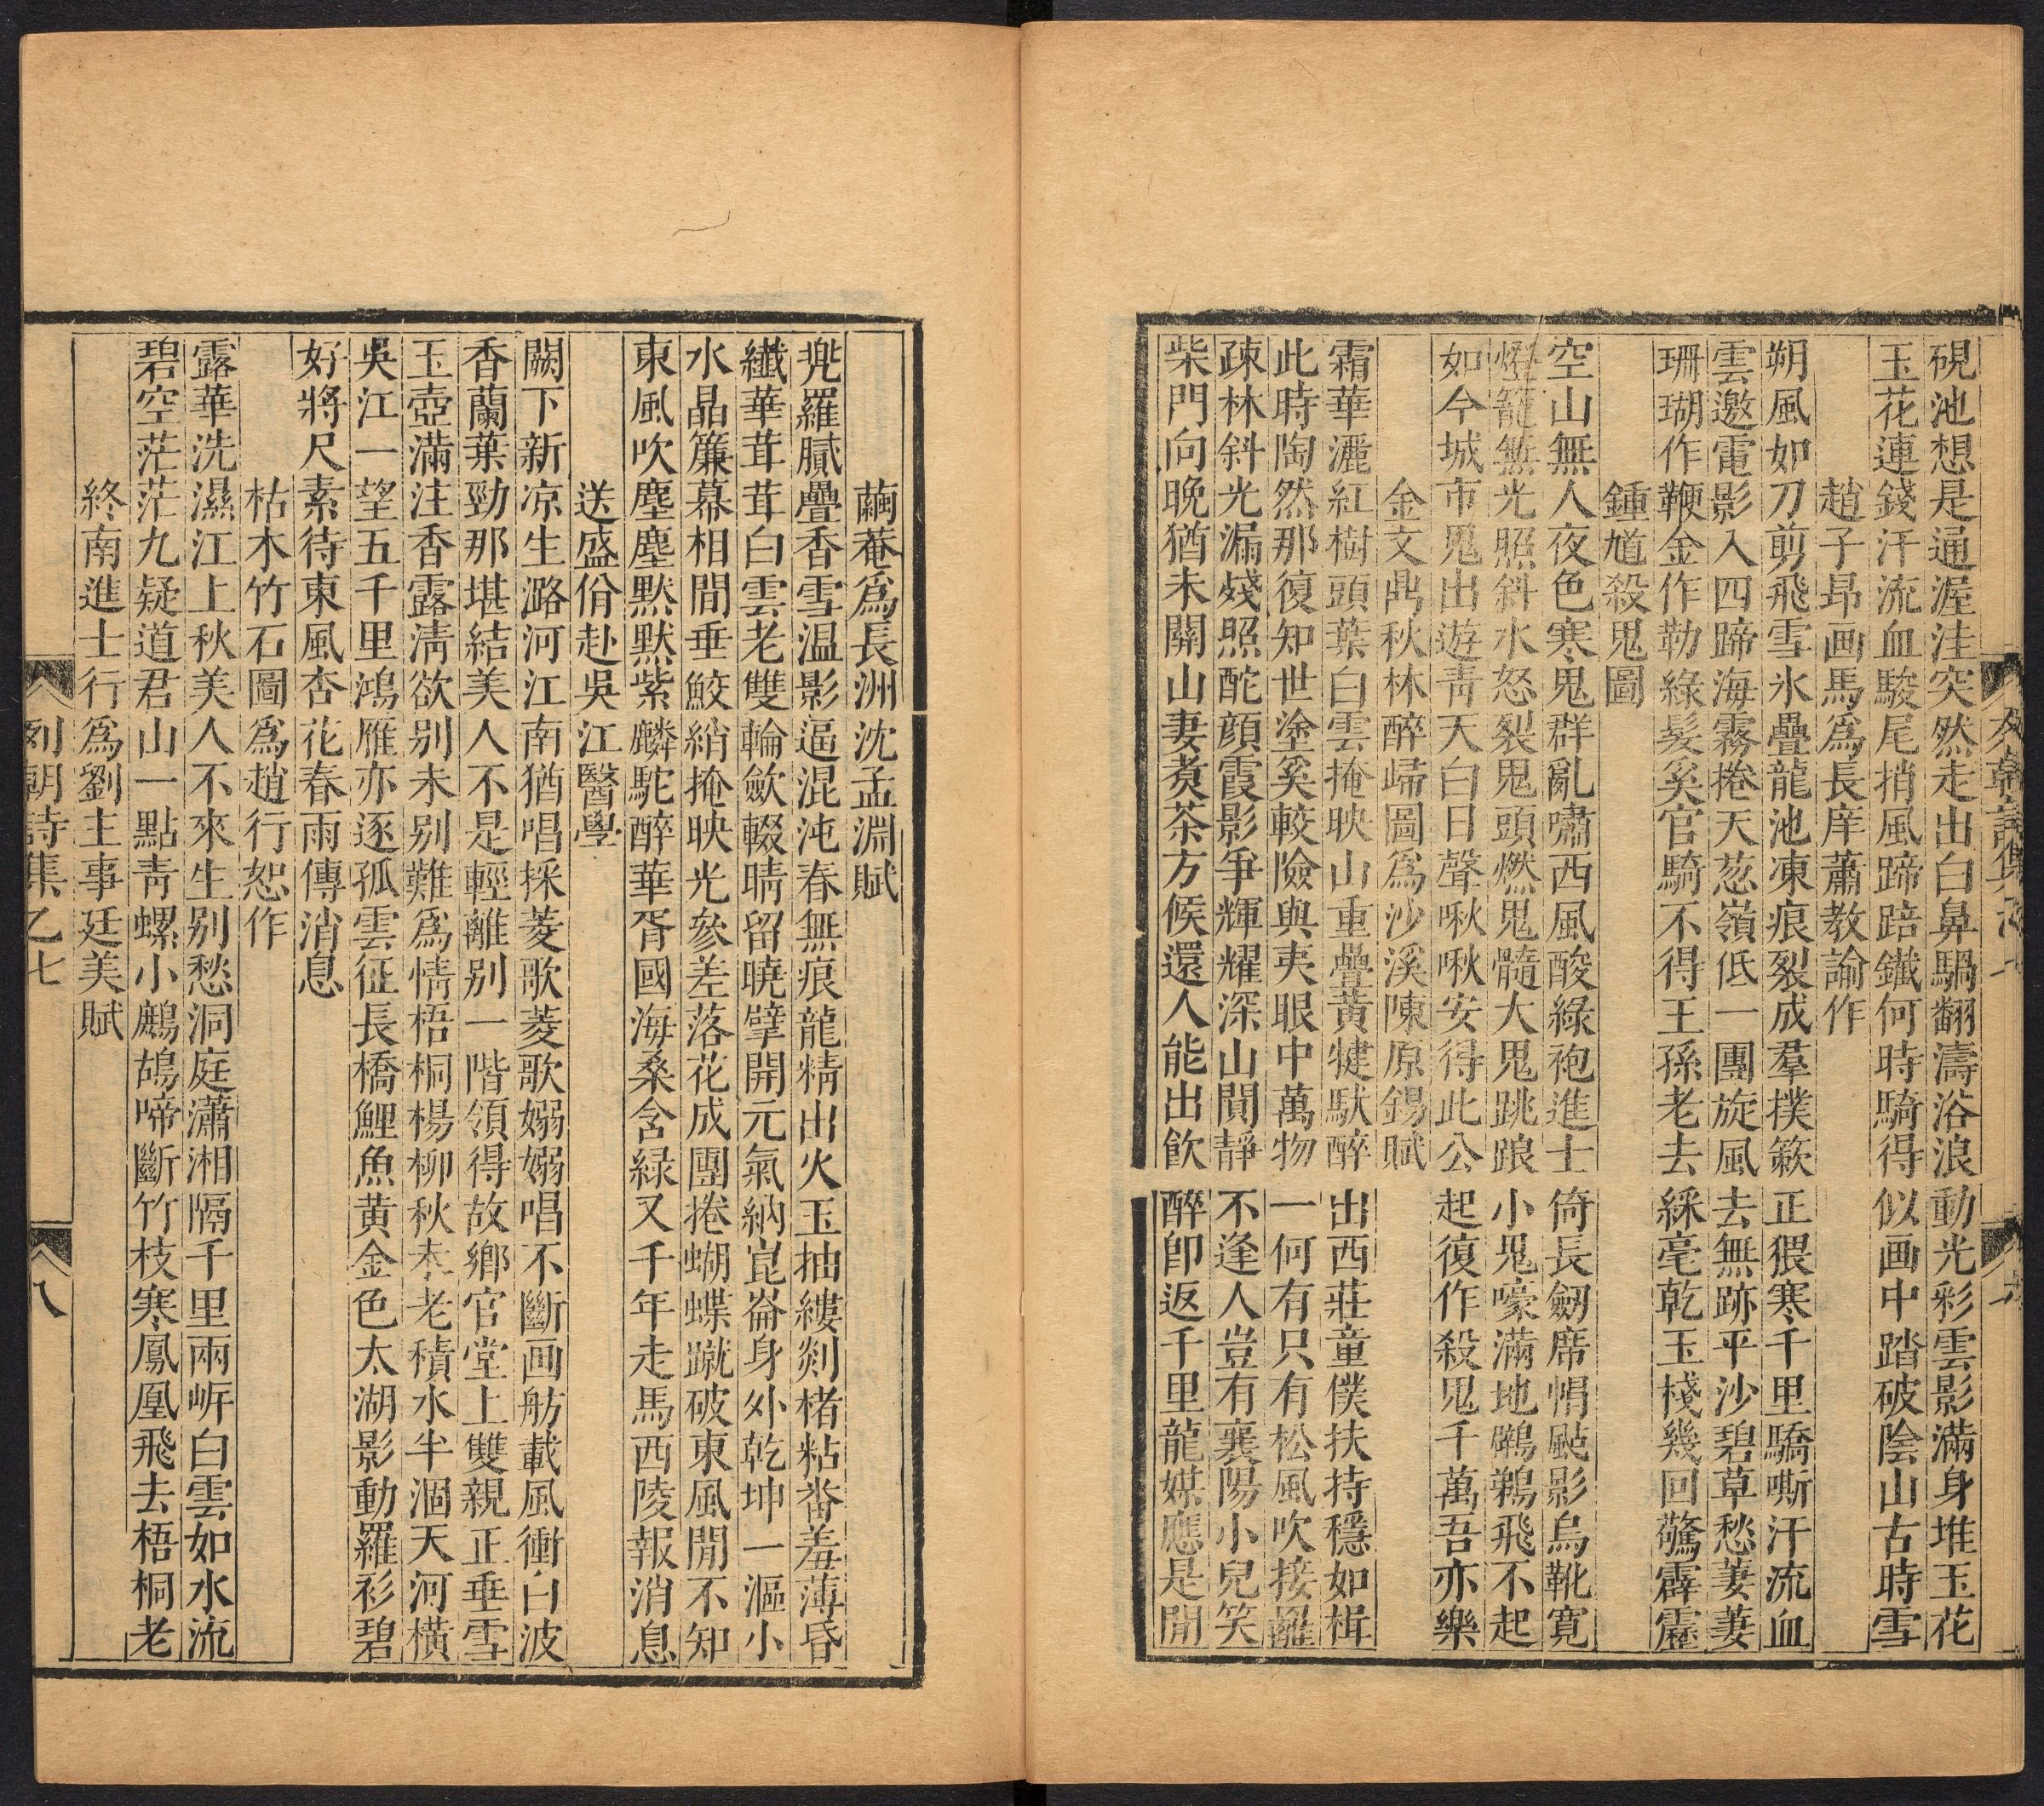 硯池想是通渥洼突然走出白鼻騧翻濤浴浪動光彩雲影滿身堆玉花
玉花連錢汗流血駿尾捎風蹄踣鐵何時騎得似画中踏破陰山古時雪
趙子昻画馬爲長庠蕭教諭作
朔風如刀剪飛雪氷疊龍池凍痕裂成羣撲簌正猥寒千里驕嘶汗流血
雲邀電影入四蹄海霧捲天葱嶺低一團旋風去無跡平沙碧草愁萋萋
珊瑚作鞭金作勒綠髮奚官騎不得王孫老去綵毫乾玉棧幾回驚霹靂
鍾馗殺鬼圖
空山無人夜色寒鬼群亂嘯西風酸綠袍進士倚長劒席帽颭影烏靴寛
燈籠無光照斜水怒裂鬼頭燃鬼髓大鬼跳踉小鬼嚎滿地鸊鵜飛不起
如今城市鬼出遊靑天白日聲啾啾安得此公起復作殺鬼千萬吾亦樂
金文鼎秋林醉歸圖爲沙溪陳原錫賦
霜華灑紅樹頭葉白雲掩映山重疊黃犍馱醉出西莊童僕扶持穩如楫
此時陶然那復知世塗奚較險與夷眼中萬物一何有只有松風吹接䍦
疎林斜光漏殘照酡顔霞影爭輝耀深山閴靜不逢人豈有襄陽小兒笑
柴門向晚猶未關山妻煑茶方候還人能出飮醉卽返千里龍媒應是閒
列朝詩集 乙七
繭菴爲長洲沈孟淵賦
兠羅膩疊香雪温影逼混沌春無痕龍精出火玉抽縷剡楮粘畨羞薄昏
纖華茸茸白雲老雙輪歛輟晴留曉擘開元氣納崑崙身外乾坤一漚小
水晶簾幕相間垂鮫綃掩映光參差落花成團捲蝴蝶蹴破東風閒不知
東風吹塵塵黙黙紫麟駝醉華胥國海桑含緑又千年走馬西陵報消息
送盛佾赴吳江醫學
闕下新凉生潞河江南猶唱採菱歌菱歌嫋嫋唱不斷画舫載風衝白波
香蘭葉勁那堪結美人不是輕離别一階領得故鄉官堂上雙親正垂雪
玉壺滿注香露淸欲别未别難爲情梧桐楊柳秋未老積水半涸天河橫
吳江一望五千里鴻雁亦逐孤雲征長橋鯉魚黄金色太湖影動羅衫碧
好將尺素待東風杏花春雨傳消息
枯木竹石圖爲趙行恕作
露華洗濕江上秋美人不來生别愁洞庭瀟湘隔千里兩岍白雲如水流
碧空茫茫九疑道君山一點靑螺小鷓鴣啼斷竹枝寒鳳凰飛去梧桐老
終南進士行爲劉主事廷美賦
列朝詩集 乙七
八